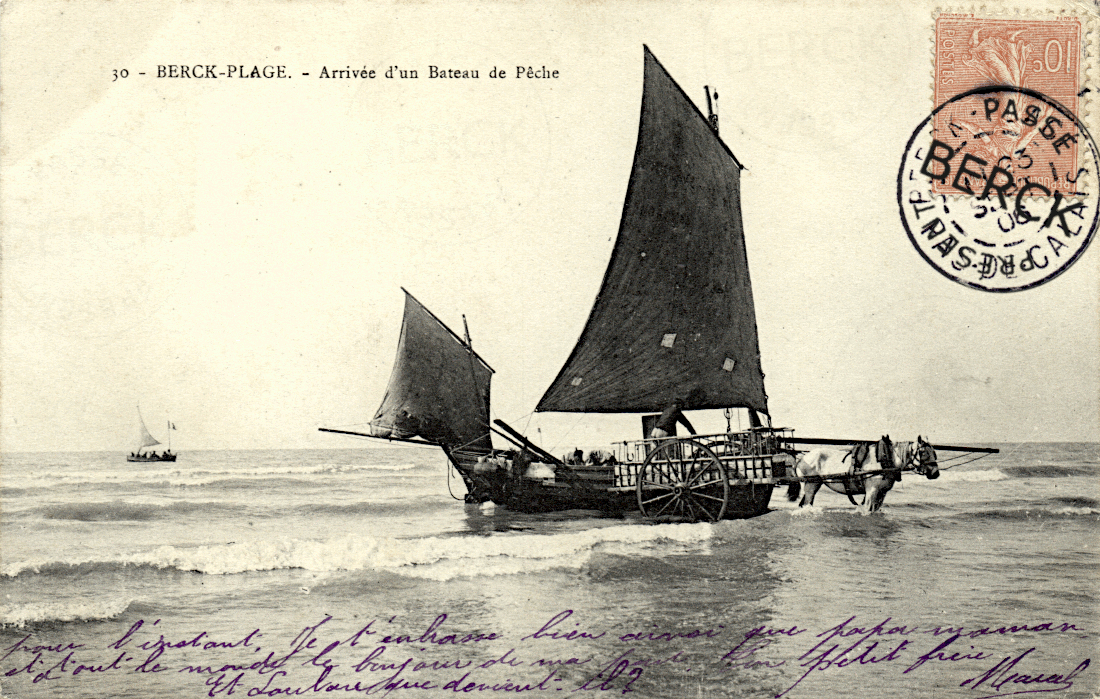 30 - BERCK-PLAGE. - Arrivée d'un Bateau de Pêche
POSTES
10
c
PASSÉ
BERCK
03
06
PAS-DE-CALAIS
pour l'instant. Je t'embrasse bien ainsi que papa maman
et tout le monde. le bonjour de ma Ton petit frère
Et Loulou que devient-il?
Marcel